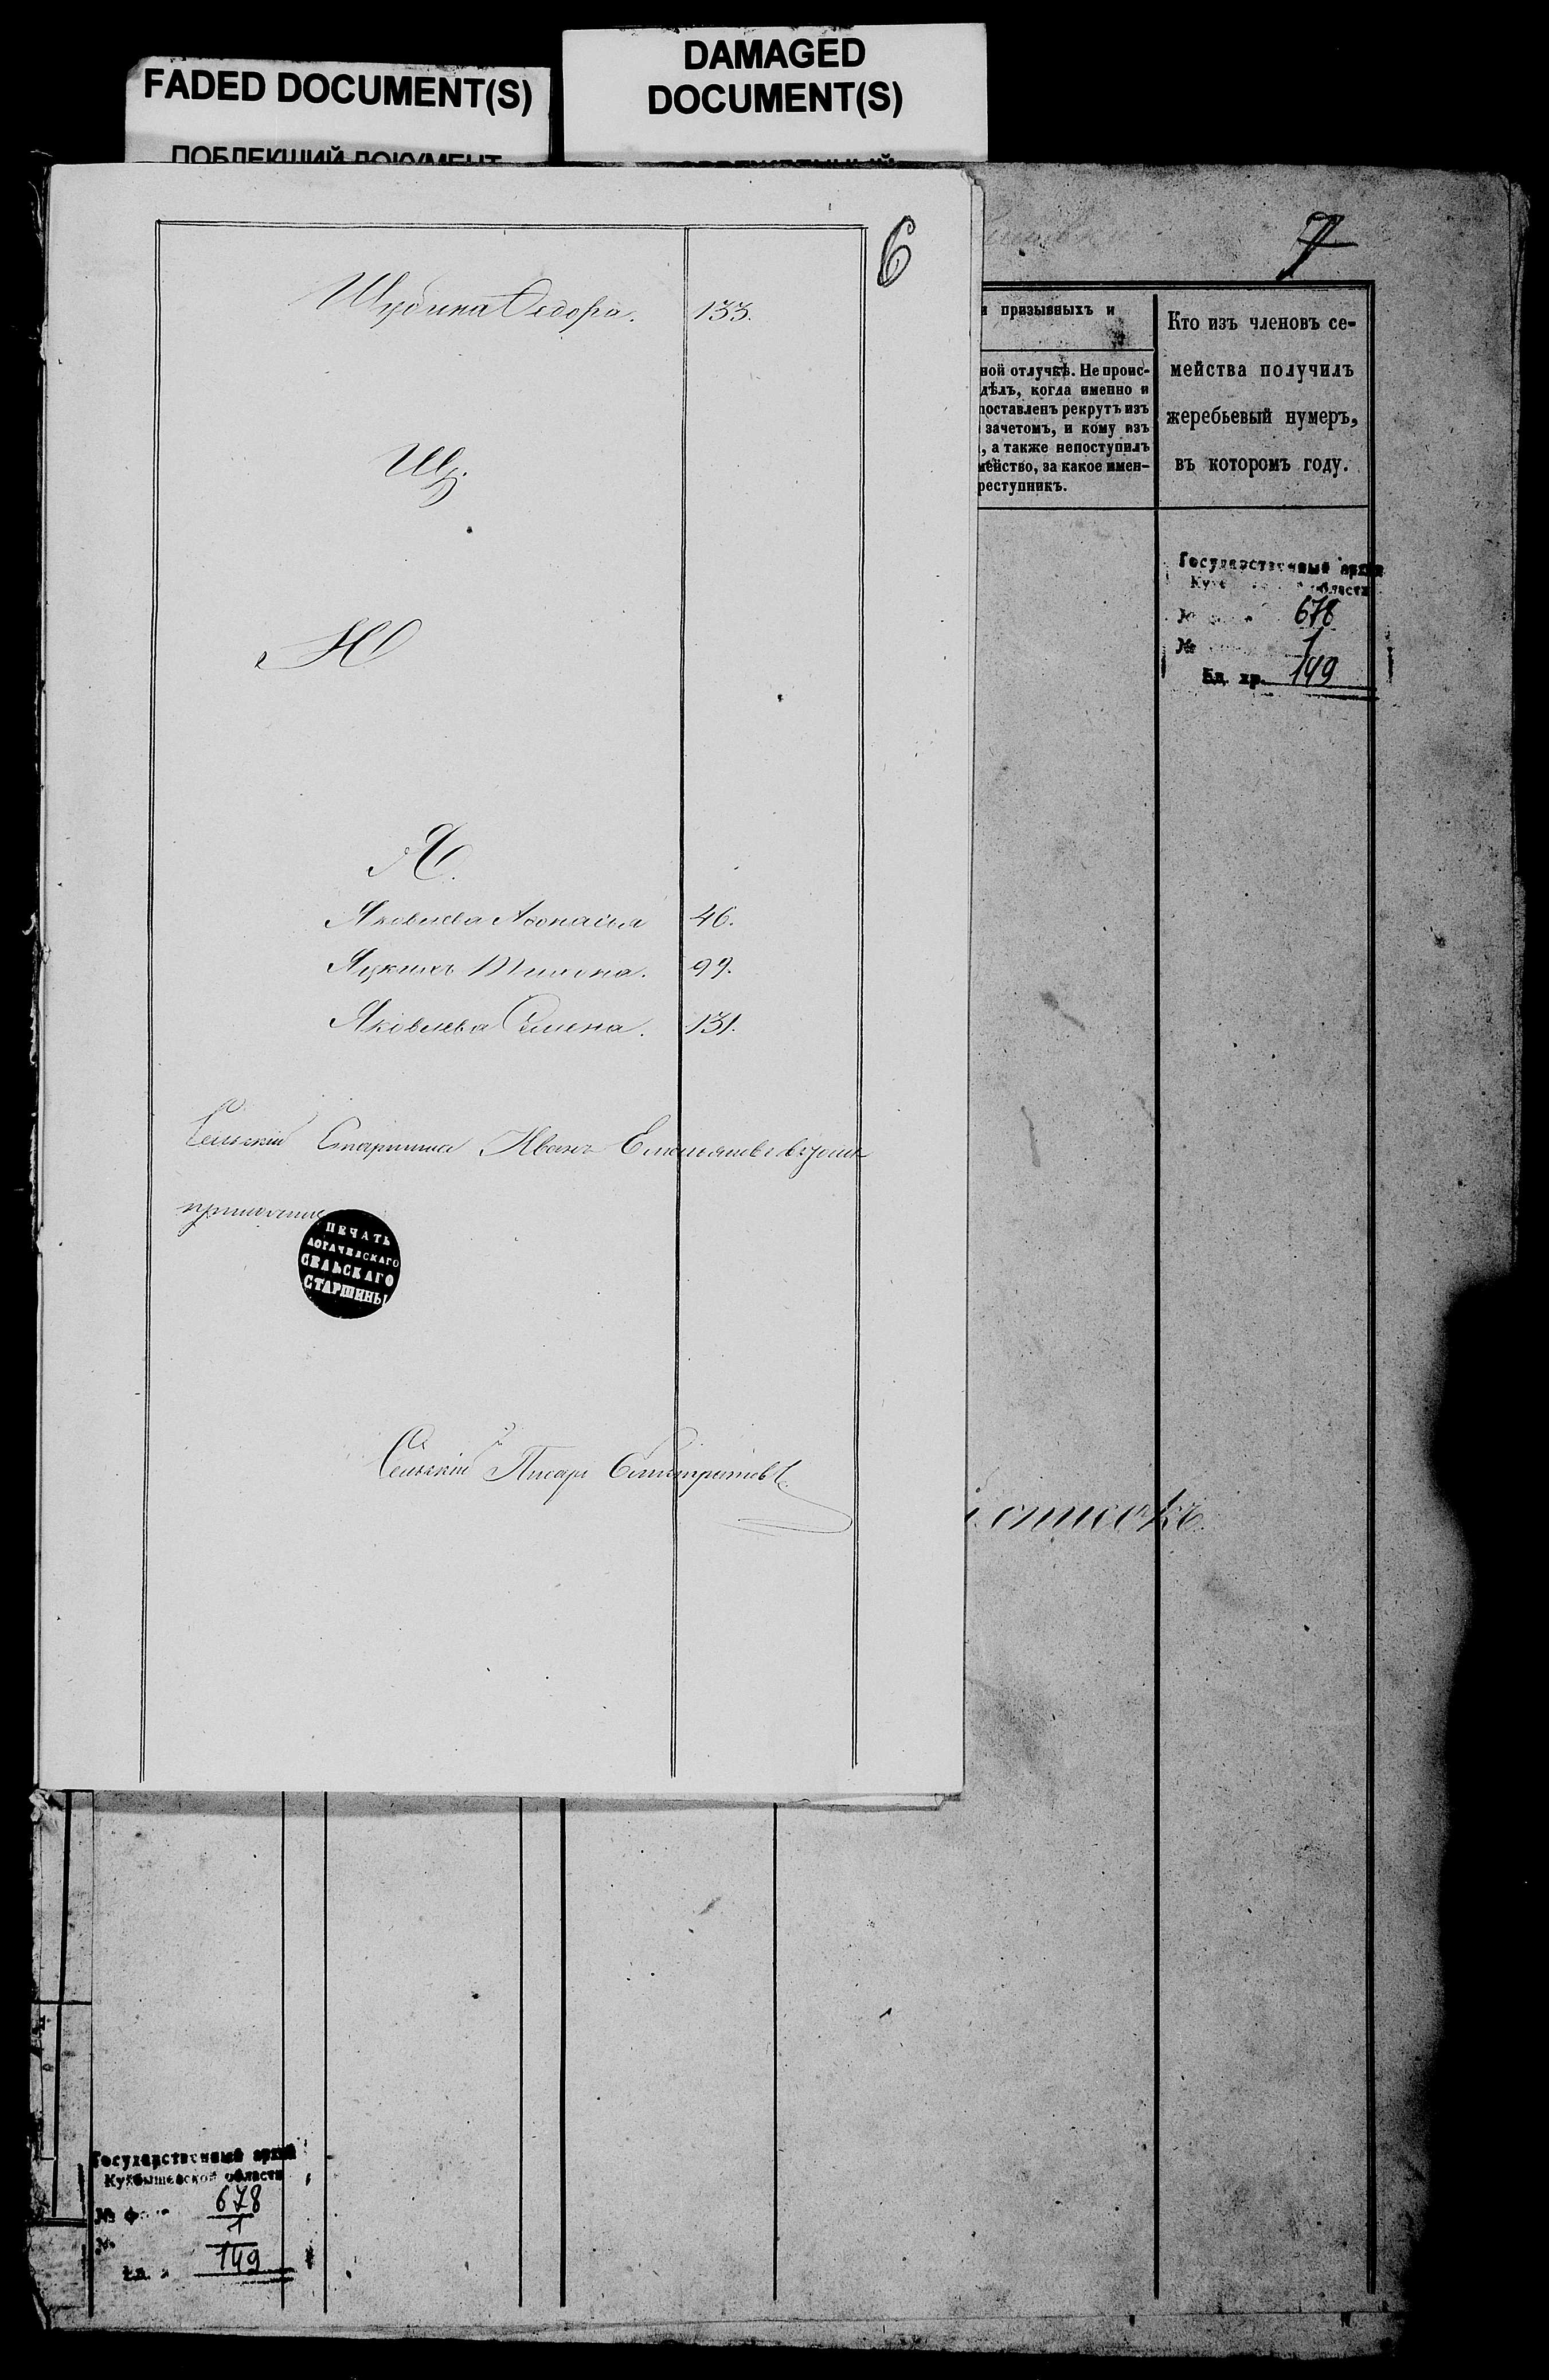 FADED DOCUMENT(S)
ПОБЛЕКШИЙ ДОКУМЕНТ
DAMAGED
DOCUMENT(S)
6
Шубина Ѳедора. 133.
Щ.
Ю
Я.
Яковлева Аѳонасія 46.
Тишина. 99.
Яковлева Семена. 131.
Сельскій Старшина Иванъ Емельяновъ
приложилъ
ПЕЧАТЬ
ЛОГАЧЕВСКАГО
СЕЛЬСКАГО
СТАРШИНЫ
Сельскій Писарь
7
и призывныхъ и
ной отлучкѣ. Не проис-
дѣлъ, когда именно и
поставленъ рекрутъ изъ
зачетомъ, и кому изъ
, а также непоступилъ
мейство, за какое имен-
реступникъ.
Кто изъ членовъ се-
мейства получилъ
жеребьевый нумеръ,
въ которомъ году.
Государственный архив
области
678
№ 1
Ед. хр. 149
списокъ.
Государственный архив
Куйбышевской области
№ ф 678
№ 1
Ед. 149